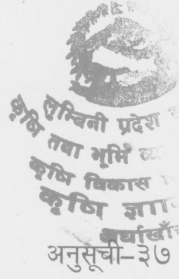 लुम्बिनी प्रदेश
कृषि तथा भूमि व्य
कृषि विकास
कृषि ज्ञा
अर्घाखाँ
अनुसूची-३७